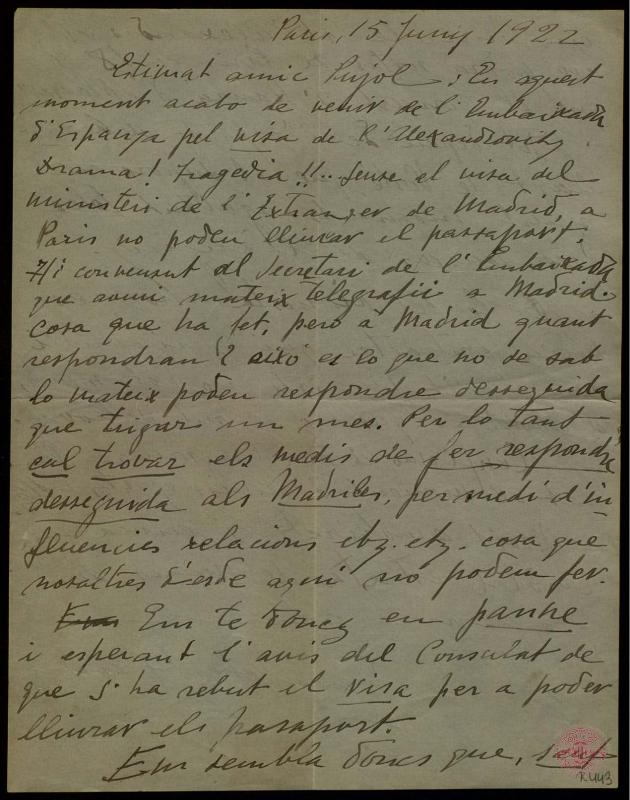 Paris, 15 Juny 1922
Estimat amic Pujol : En aquest
moment acabo de venir de l'Embaixada
d'Espanya pel visa de l'Alexandrovitz
Drama! Tragedia!!... Sense el visa del
ministeri de l'Extranger de Madrid, a
Paris no poden lliurar el passaport.
Hi convensut al Secretari de l'Embaixada
que avui mateix telegrafii a Madrid.
cosa que ha fet, pero a Madrid quant
respondran? aixó es lo que no se sab
lo mateix poden respondre desseguida
que trigar un mes. Per lo tant
cal trovar els medis de fer respondre
desseguida als Madriles, per medi d'in
fluencies relacions etz. etz. cosa que
nosaltres d'esde aquí no podem fer.
Ens te doncs en panne
i esperant l'avis del Consulat de
que s'ha rebut el visa per a poder
lliurar els pasaport.
Em sembla doncs que,
R.443